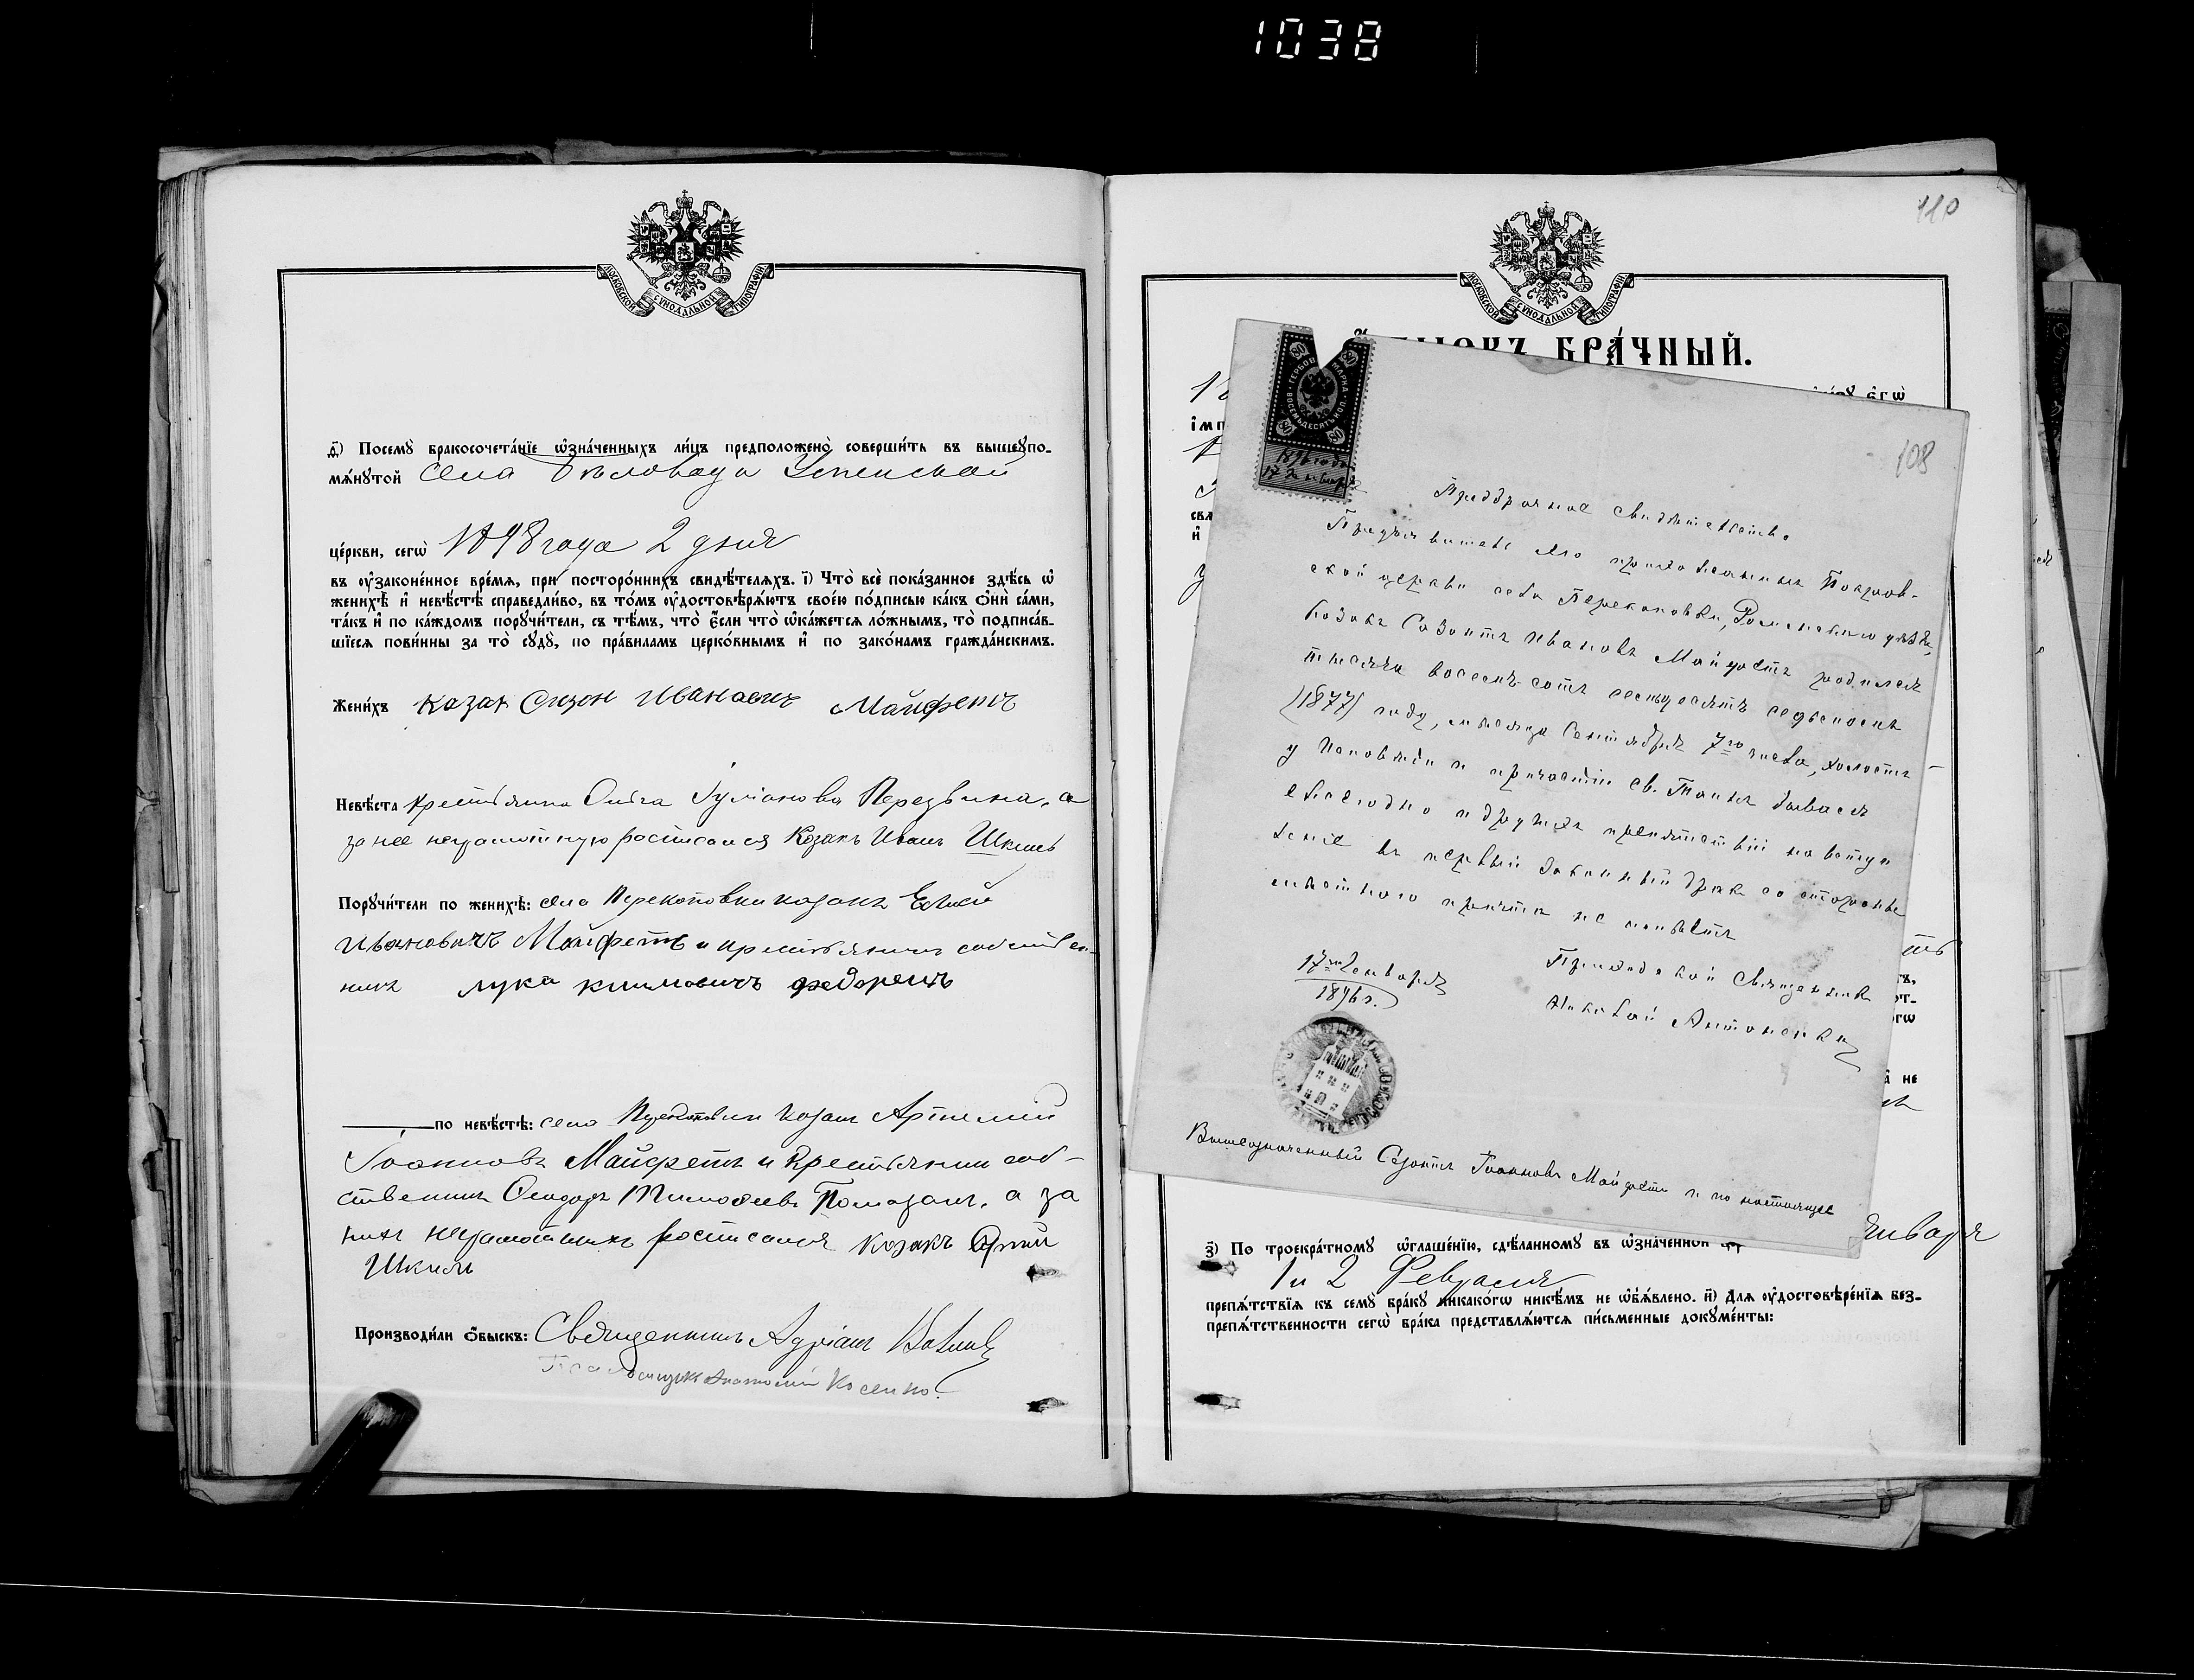 1038
МОСКОВСКОЙ СѴНОДАЛЬНОЙ ТИПОГРАФІИ
д҃) Посемꙋ̀ бракосочета́нїе ѡ҆зна́ченныхъ ли́цъ предположено̀ соверши́ть въ вышеꙋпо-
мѧ́нꙋтой села Бѣловода Успенской
це́ркви, сегѡ̀ 1898 года 2 дня
въ ᲂу҆зако́ненное вре́мѧ, при посторо́ннихъ свидѣ́телѧхъ. і҃) Что̀ всѐ пока́занное здѣ́сь ѡ҆
женихѣ̀ и҆ невѣ́стѣ справедли́во, въ то́мъ ᲂу҆достовѣрѧ́ютъ свое́ю по́дписью ка́къ ѻ҆нѝ са́ми,
та́къ и҆ по ка́ждомъ порꙋчи́тели, съ тѣ́мъ, что̀ є҆́сли что̀ ѡ҆ка́жетсѧ ло́жнымъ, то̀ подписа́в-
шїесѧ пови́нны за то̀ сꙋдꙋ̀, по пра́виламъ церко́внымъ и҆ по зако́намъ гражда́нскимъ.
Жени́хъ казак Сизон Иванович Майфетъ
Невѣ́ста крестьянка Ольга Іуліанова Перезвина, а
за нее неграмотную росписался Козакъ Иванъ Шкиль
Порꙋчи́тели по женихѣ̀: села Перекоповки козакъ Елисей
Ивановичъ Майфетъ и крестьянинъ собствен-
никъ лука климовичъ федорецъ
по невѣ́стѣ: села Перекоповки козакъ Артемій
Іоанновъ Майфетъ и Крестьянин соб-
ственникъ Феодоръ Тимофеевъ Помазанъ, а за
нихъ неграмотныхъ росписался козакъ
Шкиль
Производи́ли ѻ҆́быскъ: Священникъ Адріанъ
Псаломщикъ Анатолій Косенко.
110
МОСКОВСКОЙ СѴНОДАЛЬНОЙ ТИПОГРАФІИ
БРА́ЧНЫЙ.
є҆гѡ̀
ГЕРБОВ. МАРКА
ВОСЕМЬДЕСЯТЪ КОП.
80
1896 года
17 января
108
Предбрачное свидѣтельство
Предъявитель сего прихожанинъ Покров-
ской церкви села Перекоповки, Роменскаго уѣзда,
козакъ Созонтъ Ивановъ Майфетъ родился
тысяча восемь-сотъ семьдесятъ седьмомъ
(1877) году, мѣсяца Сентября 7го числа, холостъ
у Исповѣди и причастіи св. Таинъ бывалъ
ежегодно и другихъ препятствій на вступ
леніе въ первый законный бракъ со стороны
мѣстного причта не имѣетъ
17го Января
1896 г.
Приходской Священникъ
Николай Антоненко
Вышеозначенный Созонтъ Іоанновъ Майфетъ и по настоящее
января
з҃) По троекра́тномꙋ ѡ҆глаше́нїю, сдѣ́ланномꙋ въ ѡ҆зна́ченной
1 и 2 Февраля
препѧ́тствїѧ къ семꙋ̀ бра́кꙋ никако́гѡ никѣ́мъ не ѡ҆б̾ѧ́влено. и҃) Длѧ ᲂу҆достовѣре́нїѧ без-
препѧ́тственности сегѡ̀ бра́ка представлѧ́ютсѧ пи́сьменные докꙋме́нты: